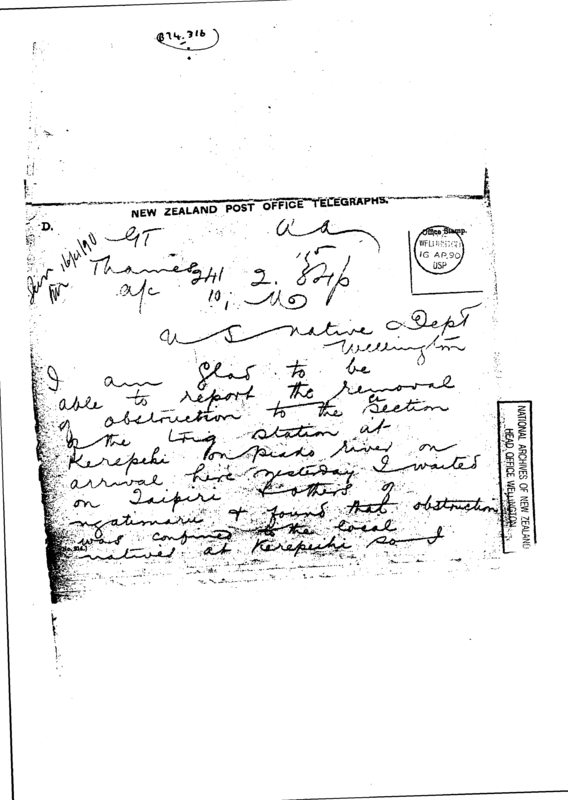 874.316
NEW ZEALAND POST OFFICE TELEGRAPHS.
D.
GT
Thames 241 2.
a/c 10,
Office Stamp.
WELLINGTON
16 AP.90
U S Native Dept
Wellington
I am glad to be
able to report the removal
of obstruction to the erection
of the trig station at
Kerepehi on piako river on
arrival here yesterday I waited
on Taipiri & others of
ngatimaru & found that obstruction
was confined to the local
natives at Kerepeehi so I
NATIONAL ARCHIVES OF NEW ZEALAND
HEAD OFFICE WELLINGTON